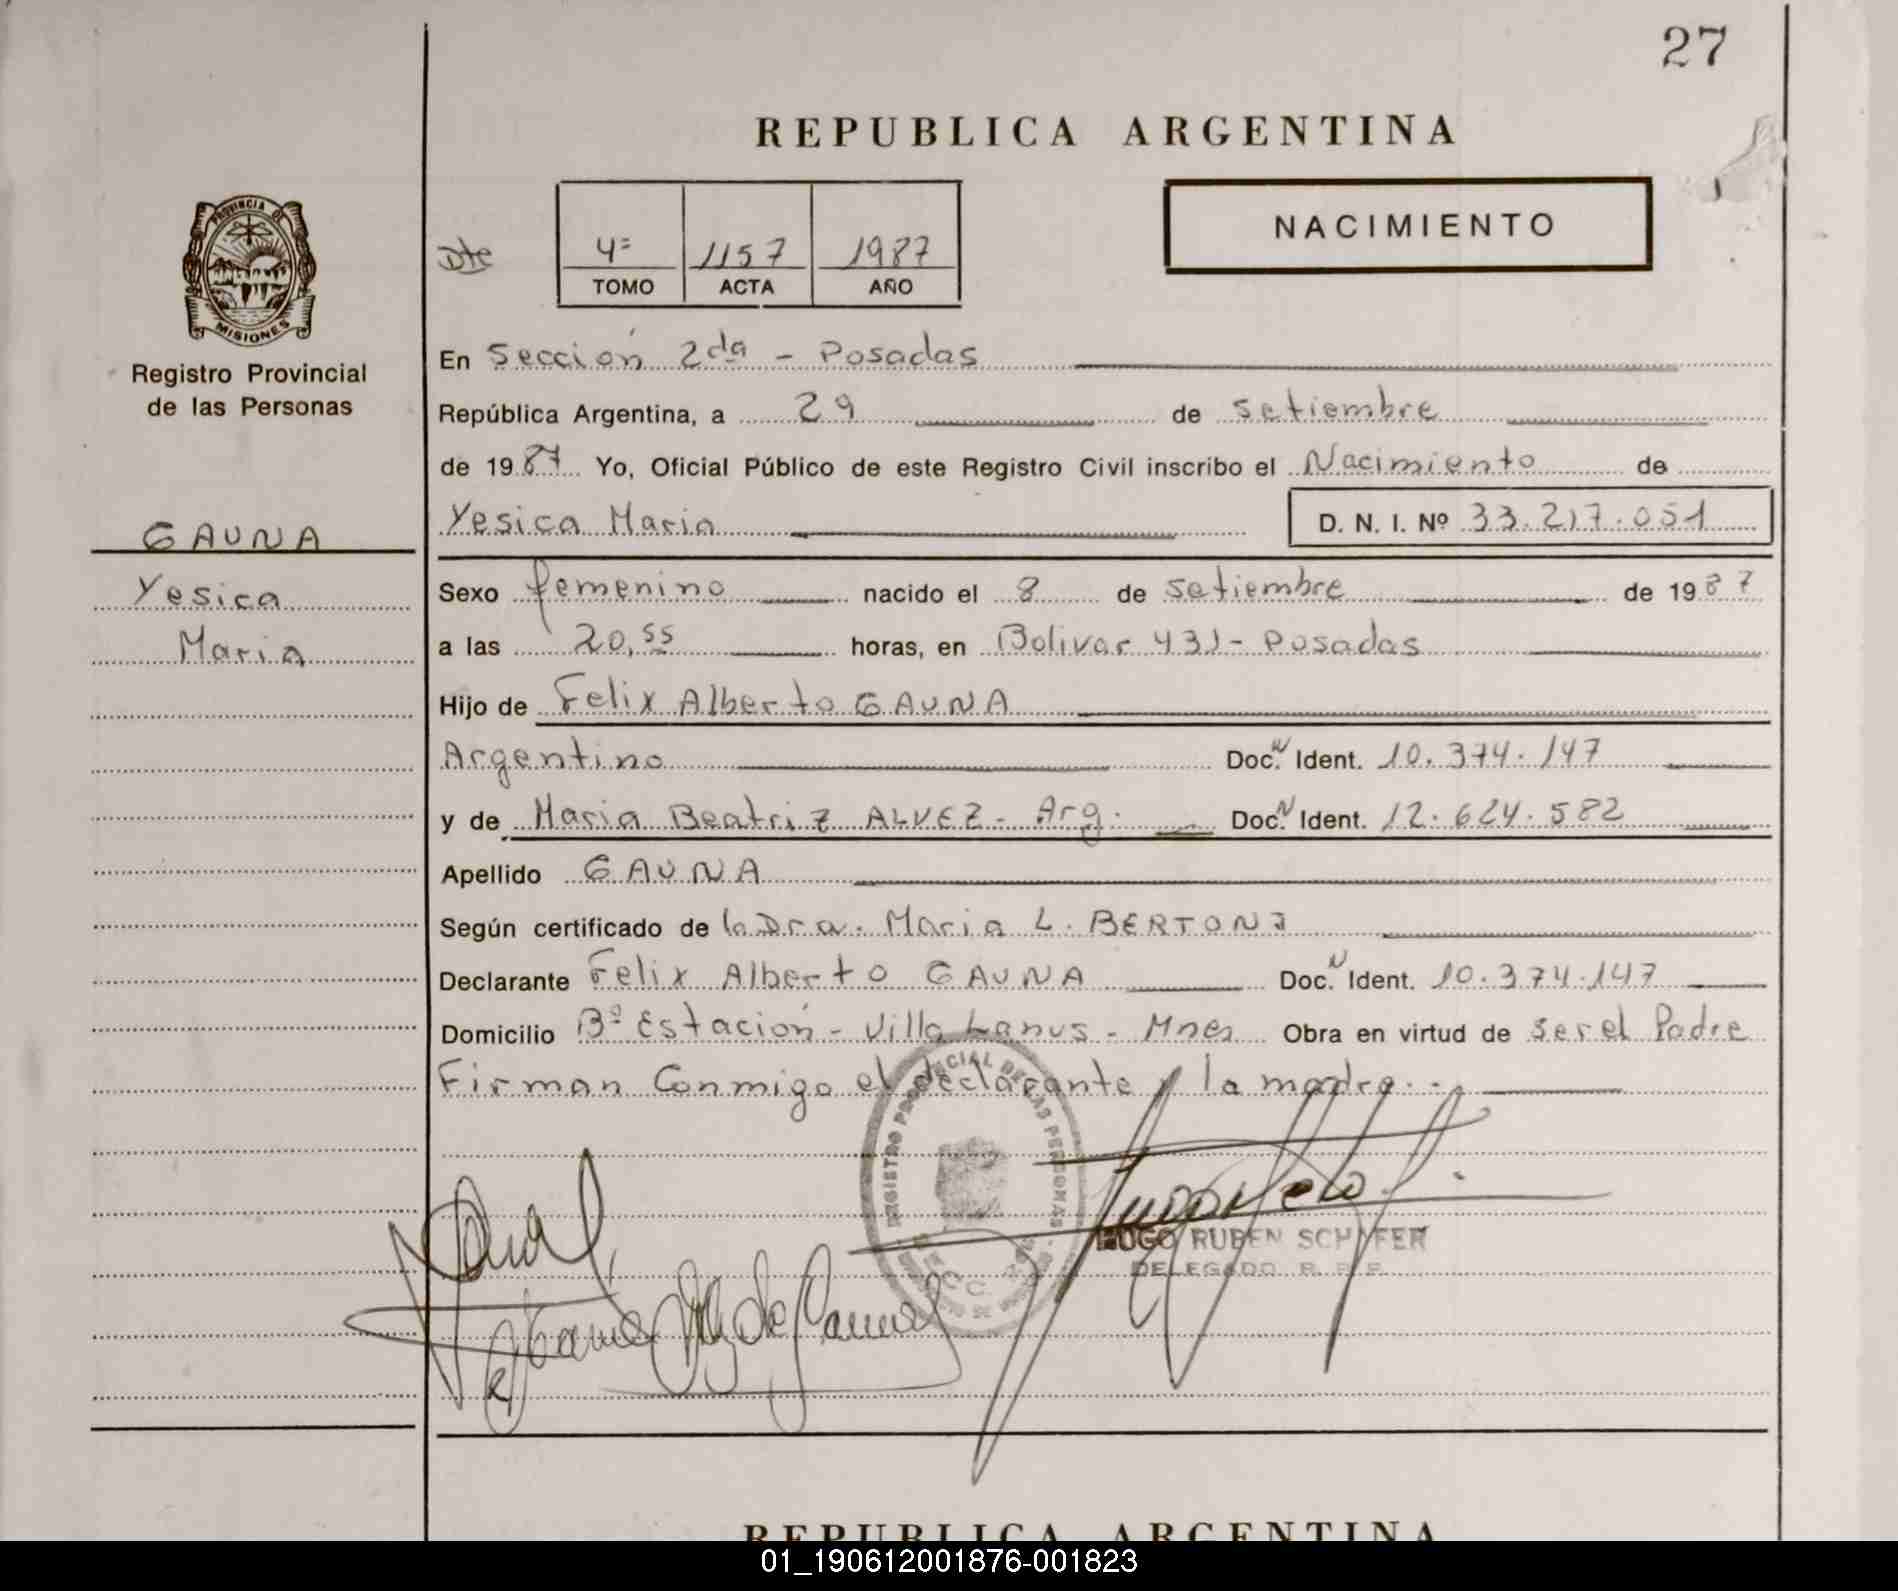 27
REPUBLICA ARGENTINA
NACIMIENTO
Dte
4º 1157 1987
TOMO ACTA AÑO
PROVINCIA DE
MISIONES
Registro Provincial
de las Personas
GAUNA
Yesica
Maria
En Sección 2da - Posadas
República Argentina, a 29 de setiembre
de 1987 Yo, Oficial Público de este Registro Civil inscribo el Nacimiento de
Yesica Maria D. N. I. Nº 33.217.051
Sexo femenino nacido el 8 de setiembre de 1987
a las 20,55 horas, en Bolivar 431 - Posadas
Hijo de Felix Alberto GAUNA
Argentino Doc. N Ident. 10.374.147
y de Maria Beatriz ALVEZ - Arg. Doc. N Ident. 12.624.582
Apellido GAUNA
Según certificado de la Dra. Maria L. BERTONI
Declarante Felix Alberto GAUNA Doc. N Ident. 10.374.147
Domicilio Bº Estación - Villa Lanus - Mnes Obra en virtud de ser el Padre
Firman Conmigo el declarante y la madre.-
REGISTRO PROVINCIAL DE LAS PERSONAS
HUGO RUBEN SCHAFER
DELEGADO R. P. P.
REPUBLICA ARGENTINA
01_190612001876-001823